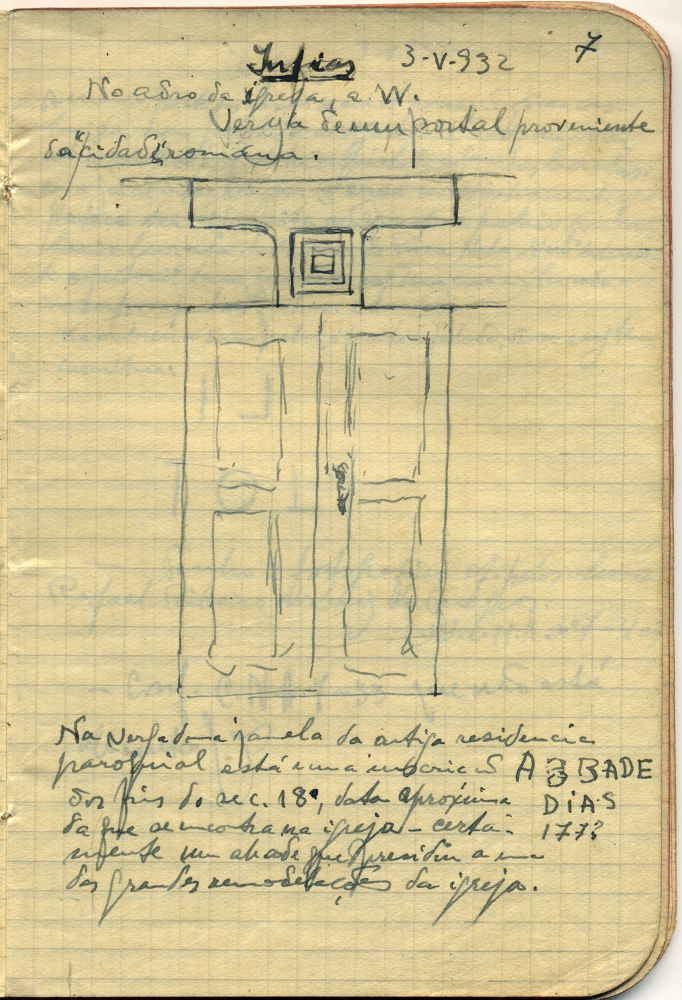 Infias 3-V-932 7
No adro da igreja, a W.
Verga de um portal proveniente
da "cidade" romana.
Na verga duma janela da antiga residencia
paroquial está uma inscrição ABBADE
dos fins do sec. 18º, data aproxima DIAS
da que se encontra na igreja – certa- 177?
mente um abade que presidiu a uma
das grandes remodelações da igreja.